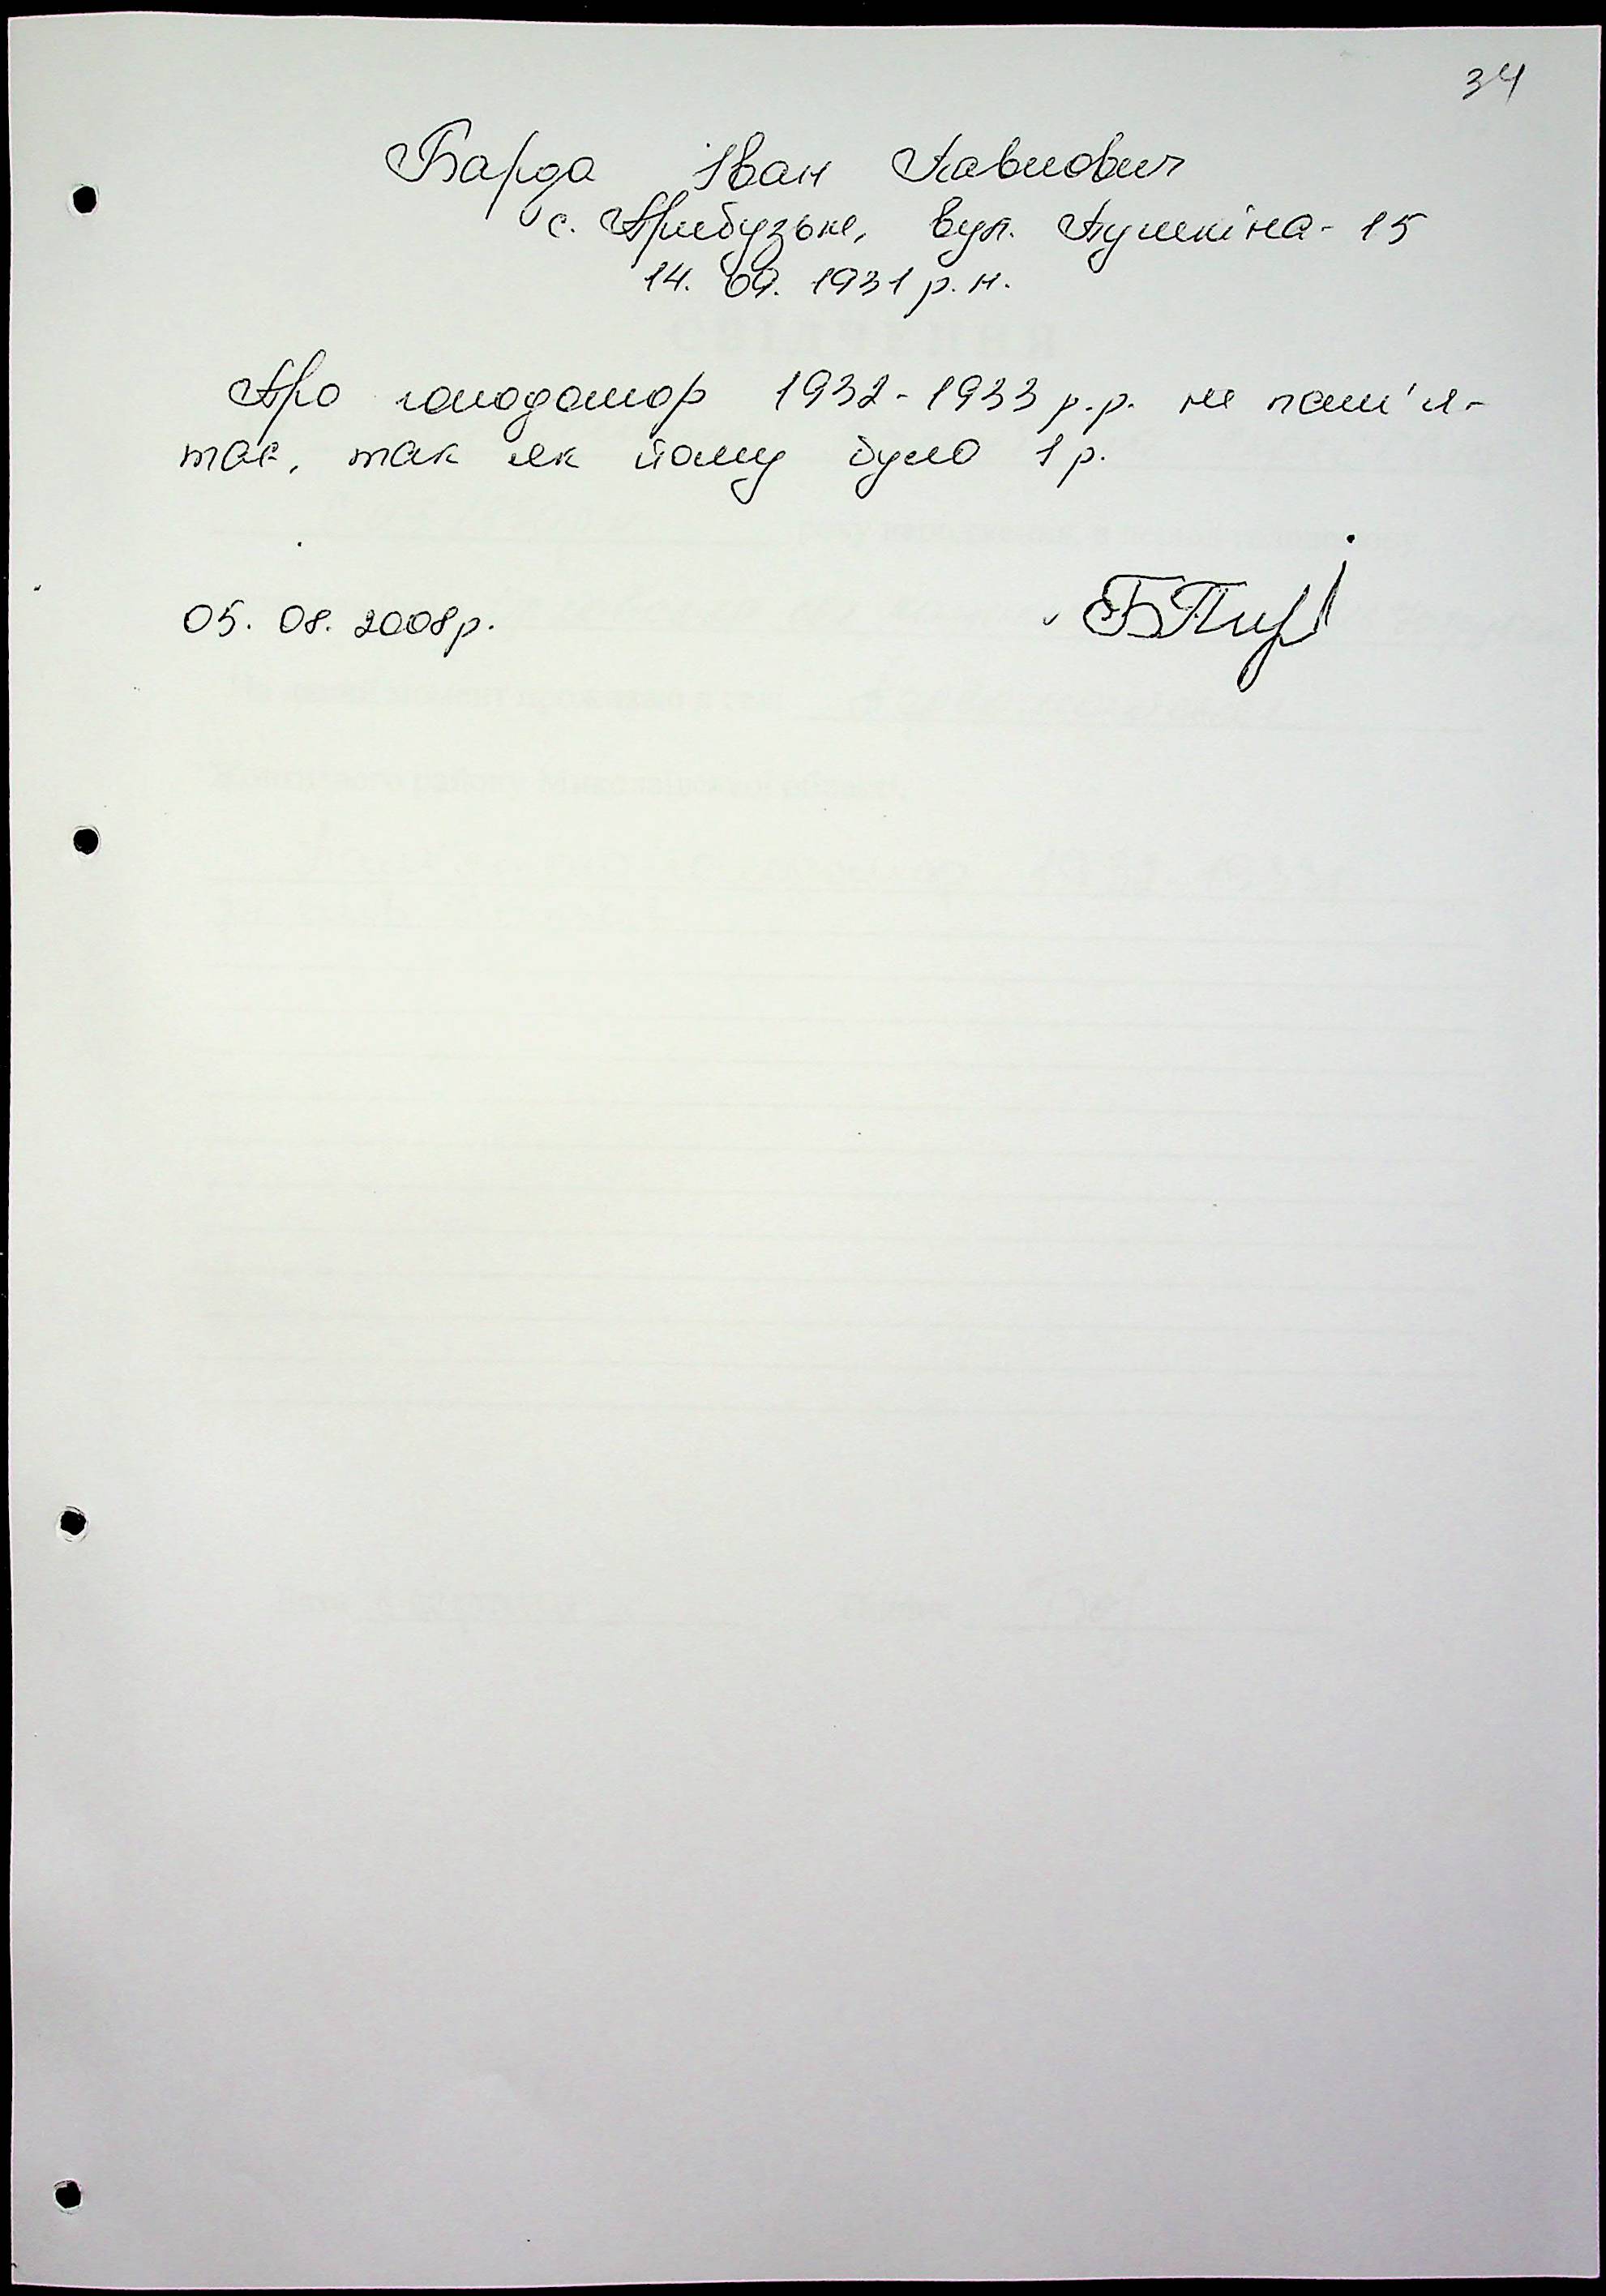 34
Барда Іван Павлович
с. Прибузьке, вул. Пушкіна - 15
14. 09. 1931 р. н.
Про голодомор 1932 - 1933 р.р. не пам'я-
тає, так як йому було 1 р.
05. 08. 2008р.